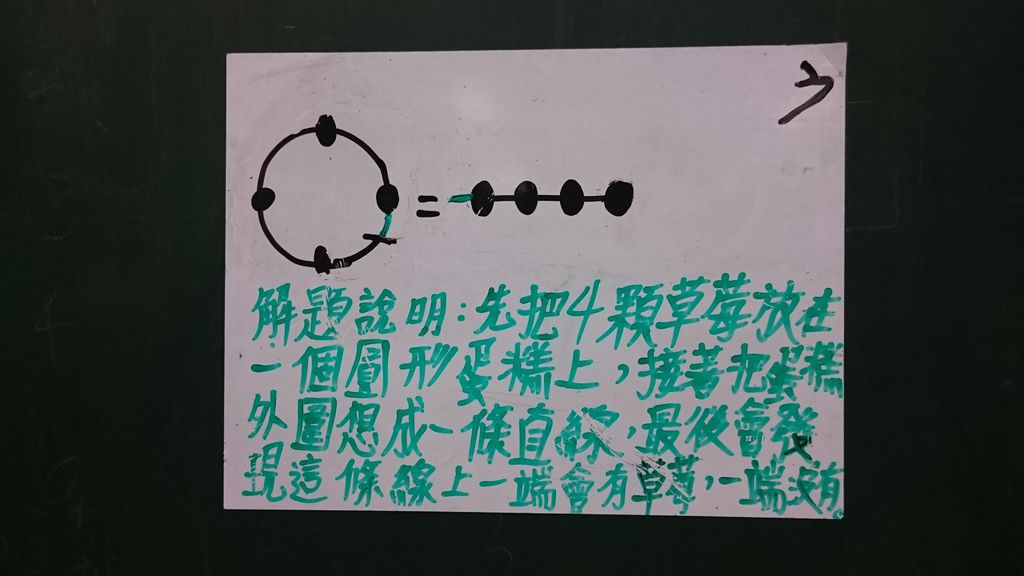 ㄅ
=
解題說明:先把4顆草莓放在
一個圓形蛋糕上,接著把蛋糕
外圍想成一條直線,最後會發
現這條線上一端會有草莓,一端沒有。